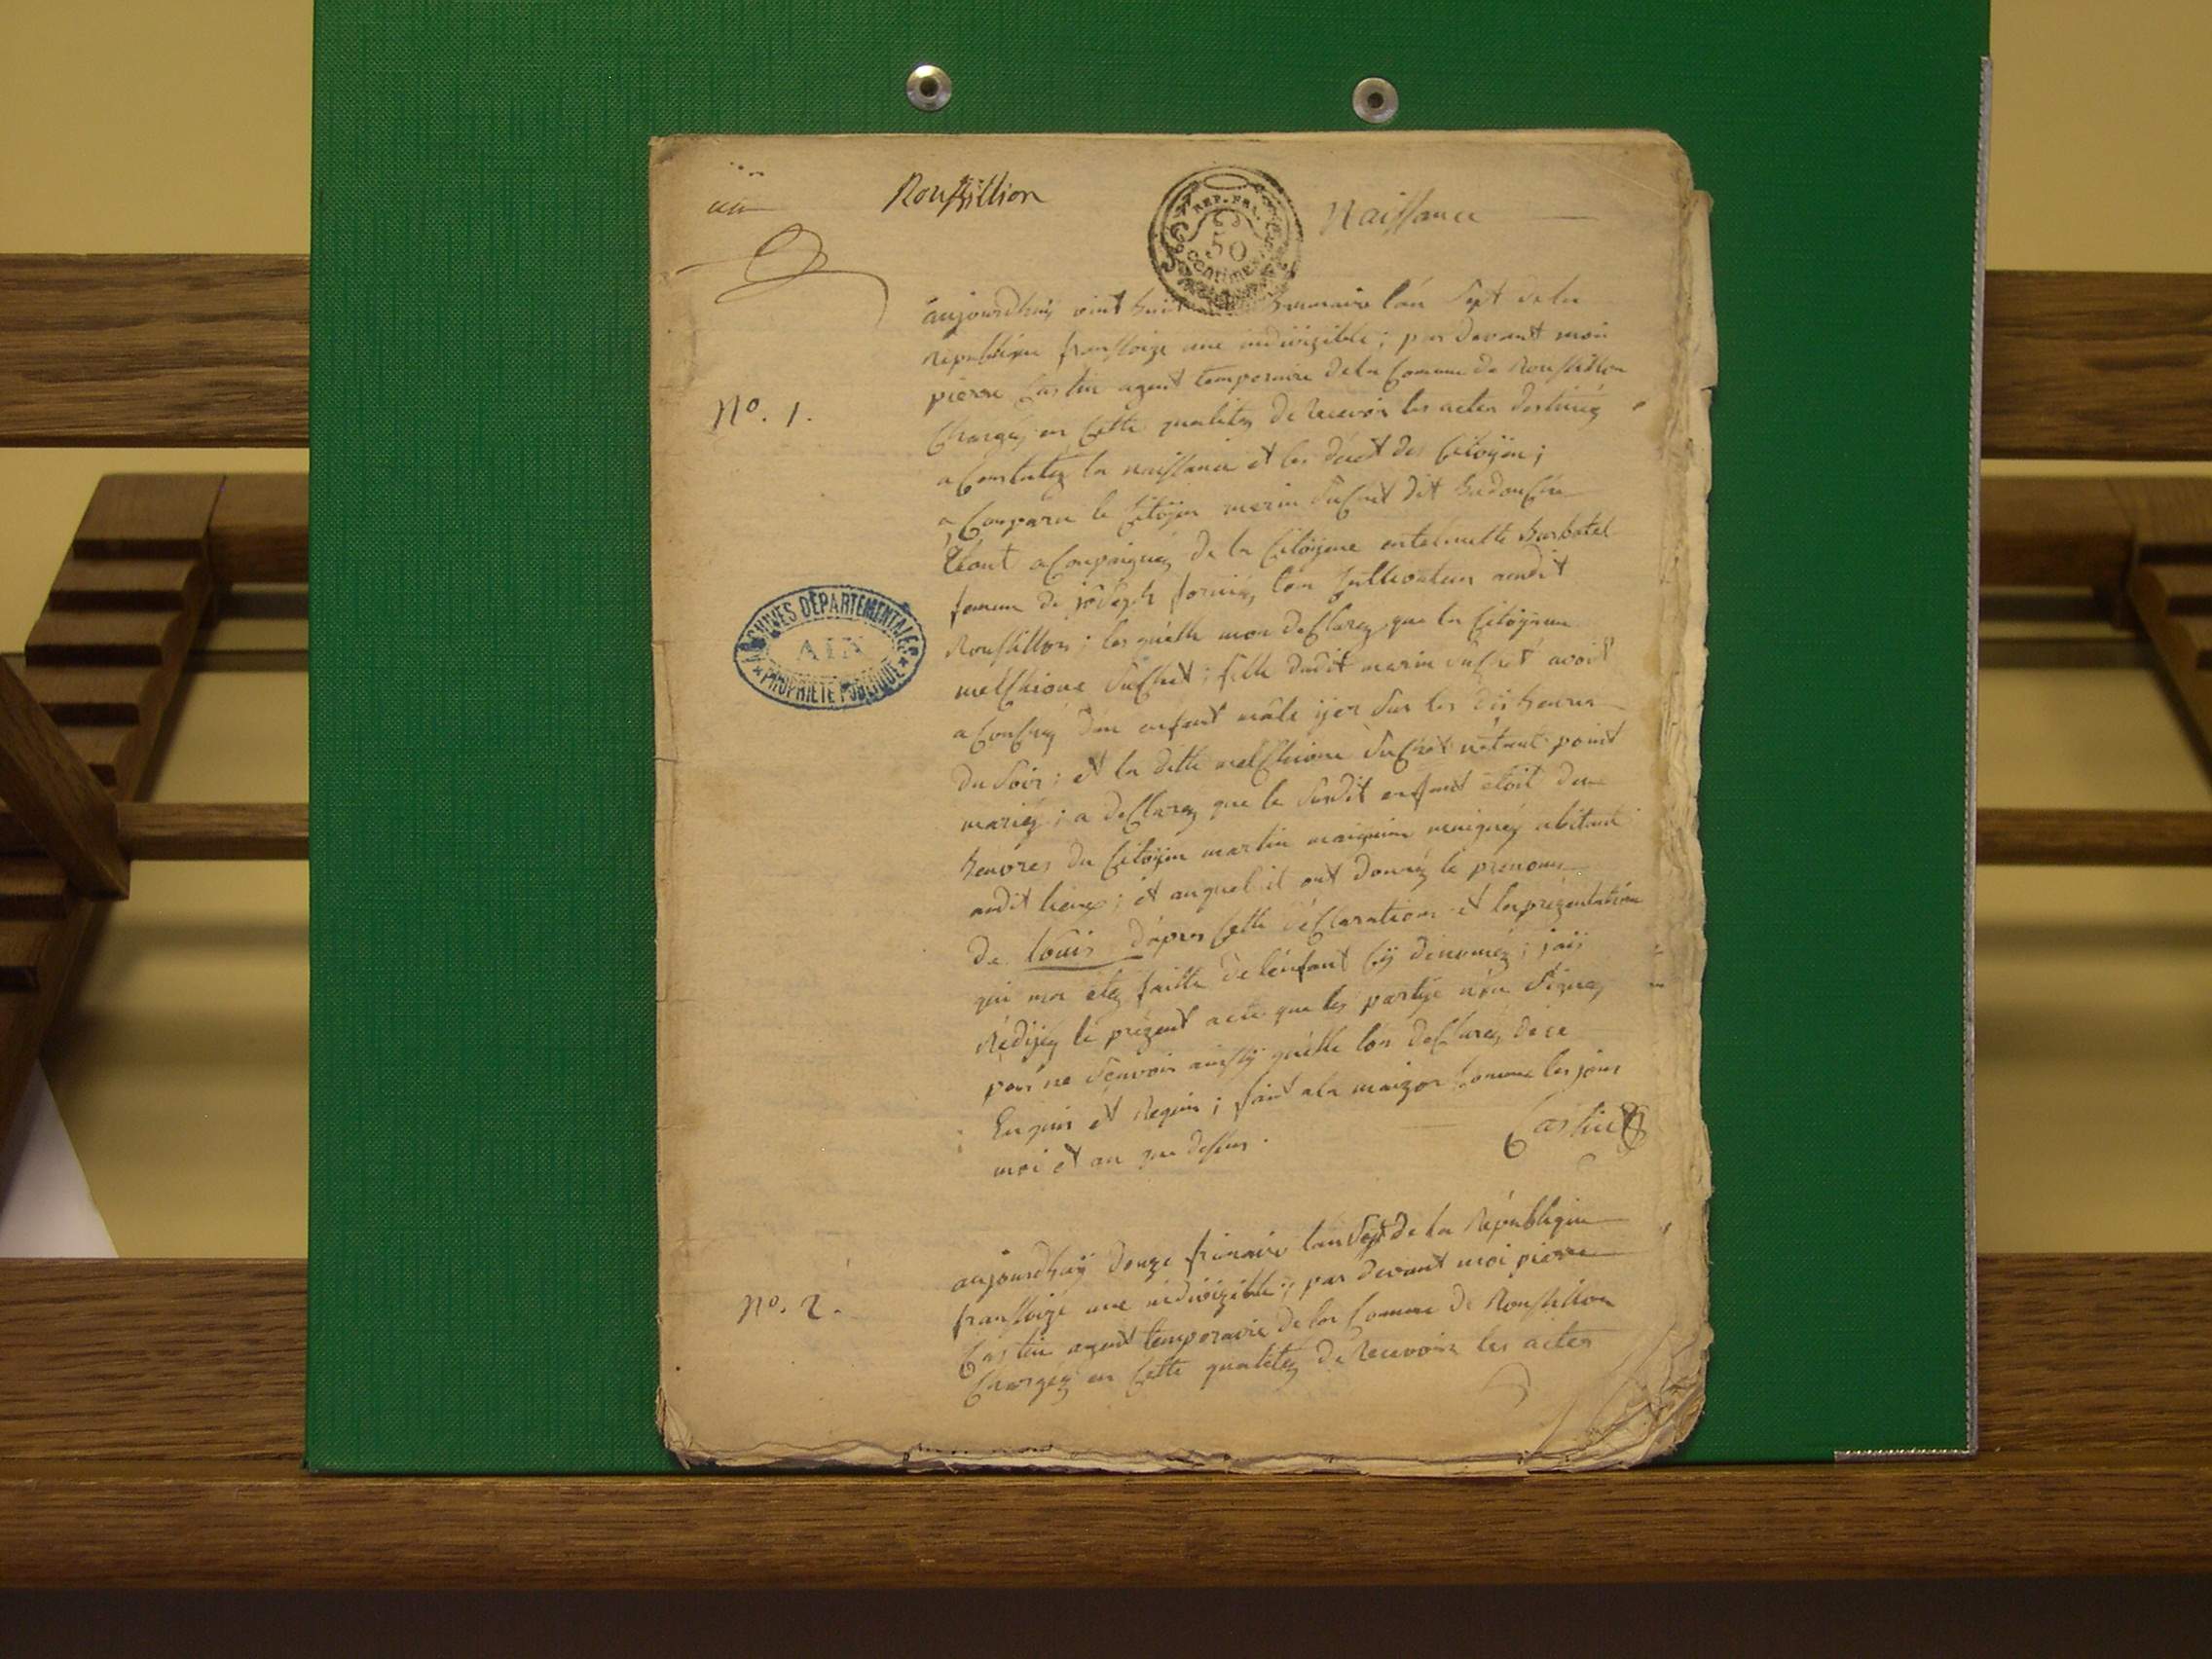 un
Roussillion
REP. FRA.
50
centimes
Naissance
aujourdhuy vint huit brumaire l'an sept de la
republique fransloize une indivizible ; par devant moi
pierre Castin agent temporaire de la Comune de Roussillion
No. 1.
Chargéz en Cette qualitéz de recevoir les actes destinéz
a Constatéz la naissance et les décèt des Citoÿen ;
a Comparu le Citoÿen merin dit
Etant aCompaignéz de la Citoÿene
femme de joseph audit
Roussillion ; les quelle mon deClaréz que la Citoÿene
melChione SuChet ; fille dudit merin SuChet avoit
aCouChéz d'un enfant mâle ijer sur les dis heures
du soir ; et la ditte melChione SuChet n'étant point
mariéz ; a deClaréz que le susdit enfant étoit des
heuvres du Citoÿen martin abitant
audit lieux ; et auquel il ont donnéz le prenom
de Louis d'àpres Cette déClaration et la prézentation
qui ma étéz faitte de l'enfant Cÿ dénoméz ; jaÿ
rédijéz le prézent acte que les partÿe n'on signéz
pour ne scavoir ainsÿ quelle lon deClaréz de ce
Enquis et Requis ; fait a la maizon Comune les jour
moi et an que dessus .
Castin
ARCHIVES DÉPARTEMENTALES
AIN
PROPRIÉTÉ PUBLIQUE
No. 2.
aujourdhuÿ douze frimaire l'an Sept de la République
fransloize une indivizible ; par devant moi pierre
Castin agent temporaire de la Comune de Roussillion
Chargéz en Cette qualitéz de Recevoir les actes